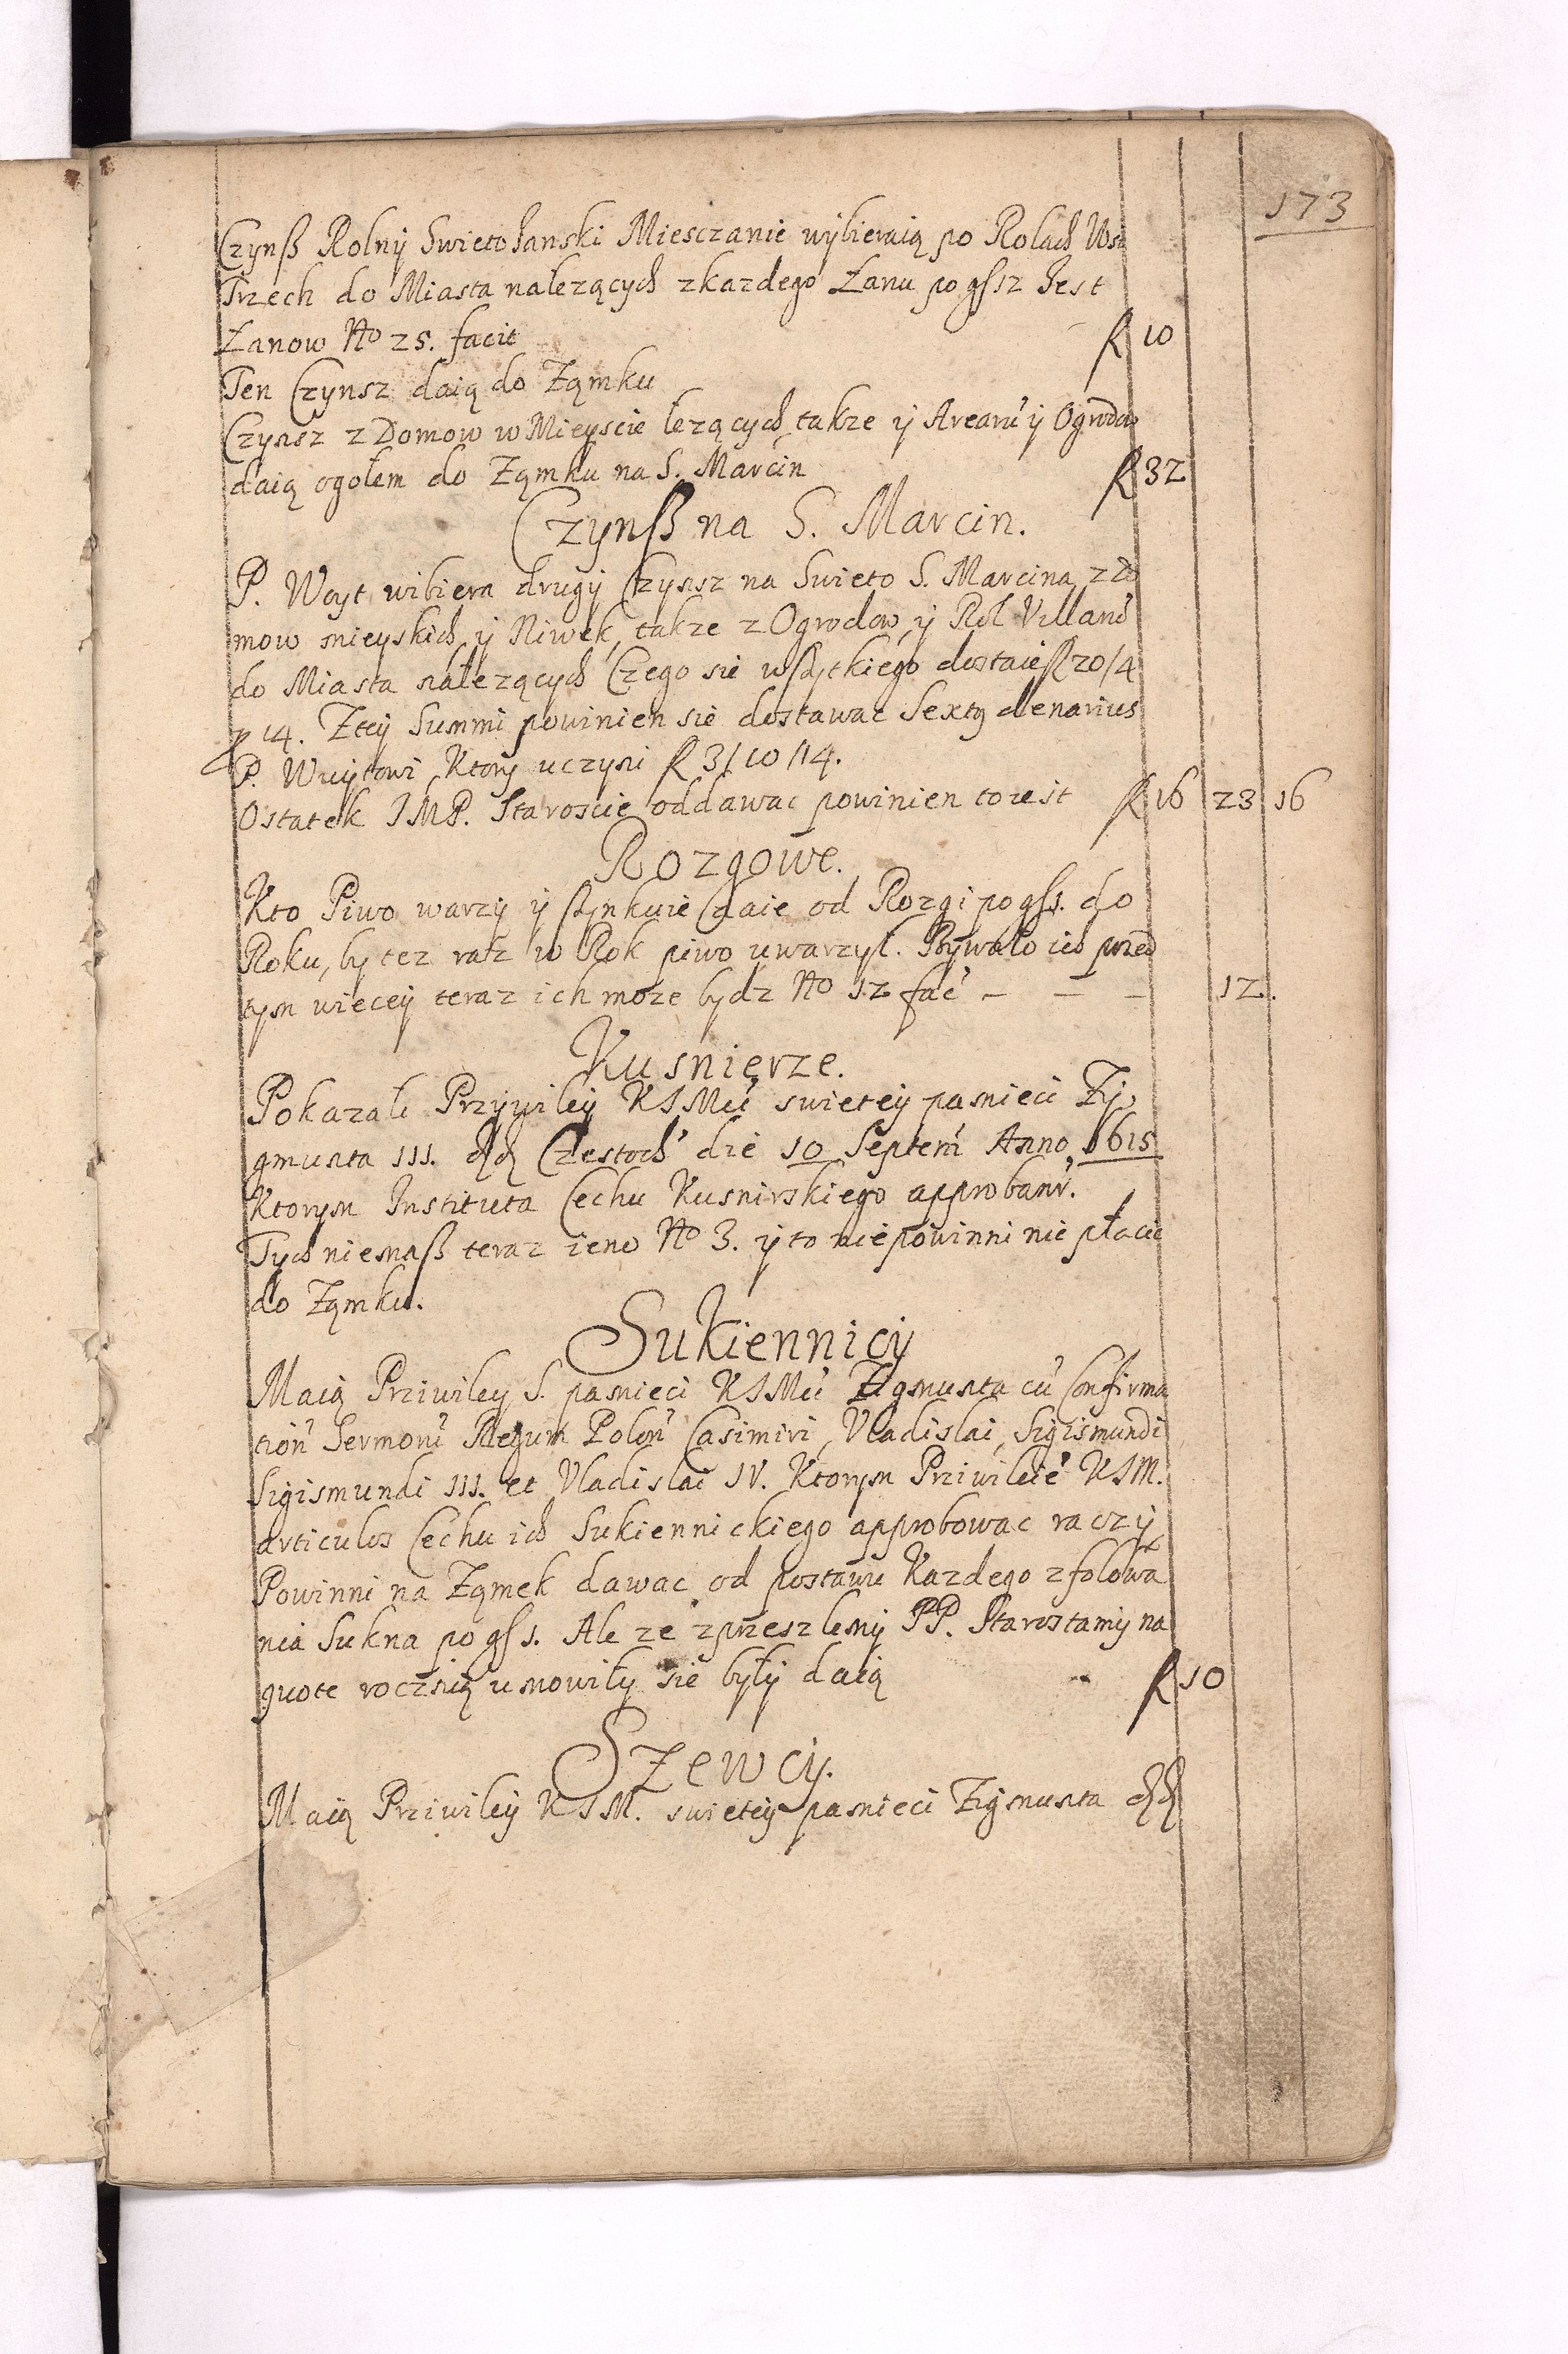 173
Czynß Rolny Swieto Janski Miesczanie wybieraią po Rolach Wsi
Trzech do Miasta nalezących z kazdego Łanu po gſ 12 Jest
Łanow No 25. facit f 10
Ten Czynsz daią do Ząmku
Czynsz z Domow w Mieyscie lezących, takze ÿ Arearū ÿ Ogrodow
daią ogołem do Ząmku na S. Marcin f 32
Czynß na S. Marcin.
P. Woyt wibiera drugÿ Czynsz na Swieto S. Marcina z do
mow mieyskich, ÿ Niwek, takze z Ogrodow, ÿ Rol Villanō
do Miasta nalezących Czego sie wszytkiego dostaie f 20/4
14. Z teÿ Summi powinien sie dostawac Sextÿ denarius
P. Wuÿtowi Ktorÿ uczyni f 3/10/14.
Ostatek JMP. Staroscie oddawac powinien to iest f 16 23 16
Rozgowe.
Kto Piwo warzÿ ÿ szynkuie daie od Rozgi po gſ 1. do
Roku, by tez raz w Rok piwo uwarzył. Bywało ich przed
tym wieceÿ teraz ich moze bydz No 12 fać – – – 12.
Kusnierze.
Pokazali Przywileÿ KJMći swieteÿ pamieci Zÿ
gmunta III. dd Czestoch' die 10 Septem̄ Anno 1615
Ktorym Instituta Cechu Kusnirskiego approbant'.
Tych niemaß teraz ieno No 3. ÿ to nie powinni nic płacic
do Ząmku.
Sukiennicÿ
Maią Priwileÿ S. pamieci KJMći Zigmunta cū Confirma
tion' Sermorū Regum Polon' Casimiri, Vladislai, Sigismundi
Sigismundi III. et Vladislai IV. Ktorym Priwileie' KJM.
articulos Cechu ich Sukiennickiego approbowac raczÿł
Powinni na Ząmek dawac od postawu Kazdego z folowa
nia Sukna po gſ 1. Ale ze z przeszlemÿ PP. Starostamÿ na
quote rocznią umowiły sie byłÿ daią f 10
Szewcÿ.
Maią Priwileÿ KJM. swieteÿ pamieci Zigmunta dd